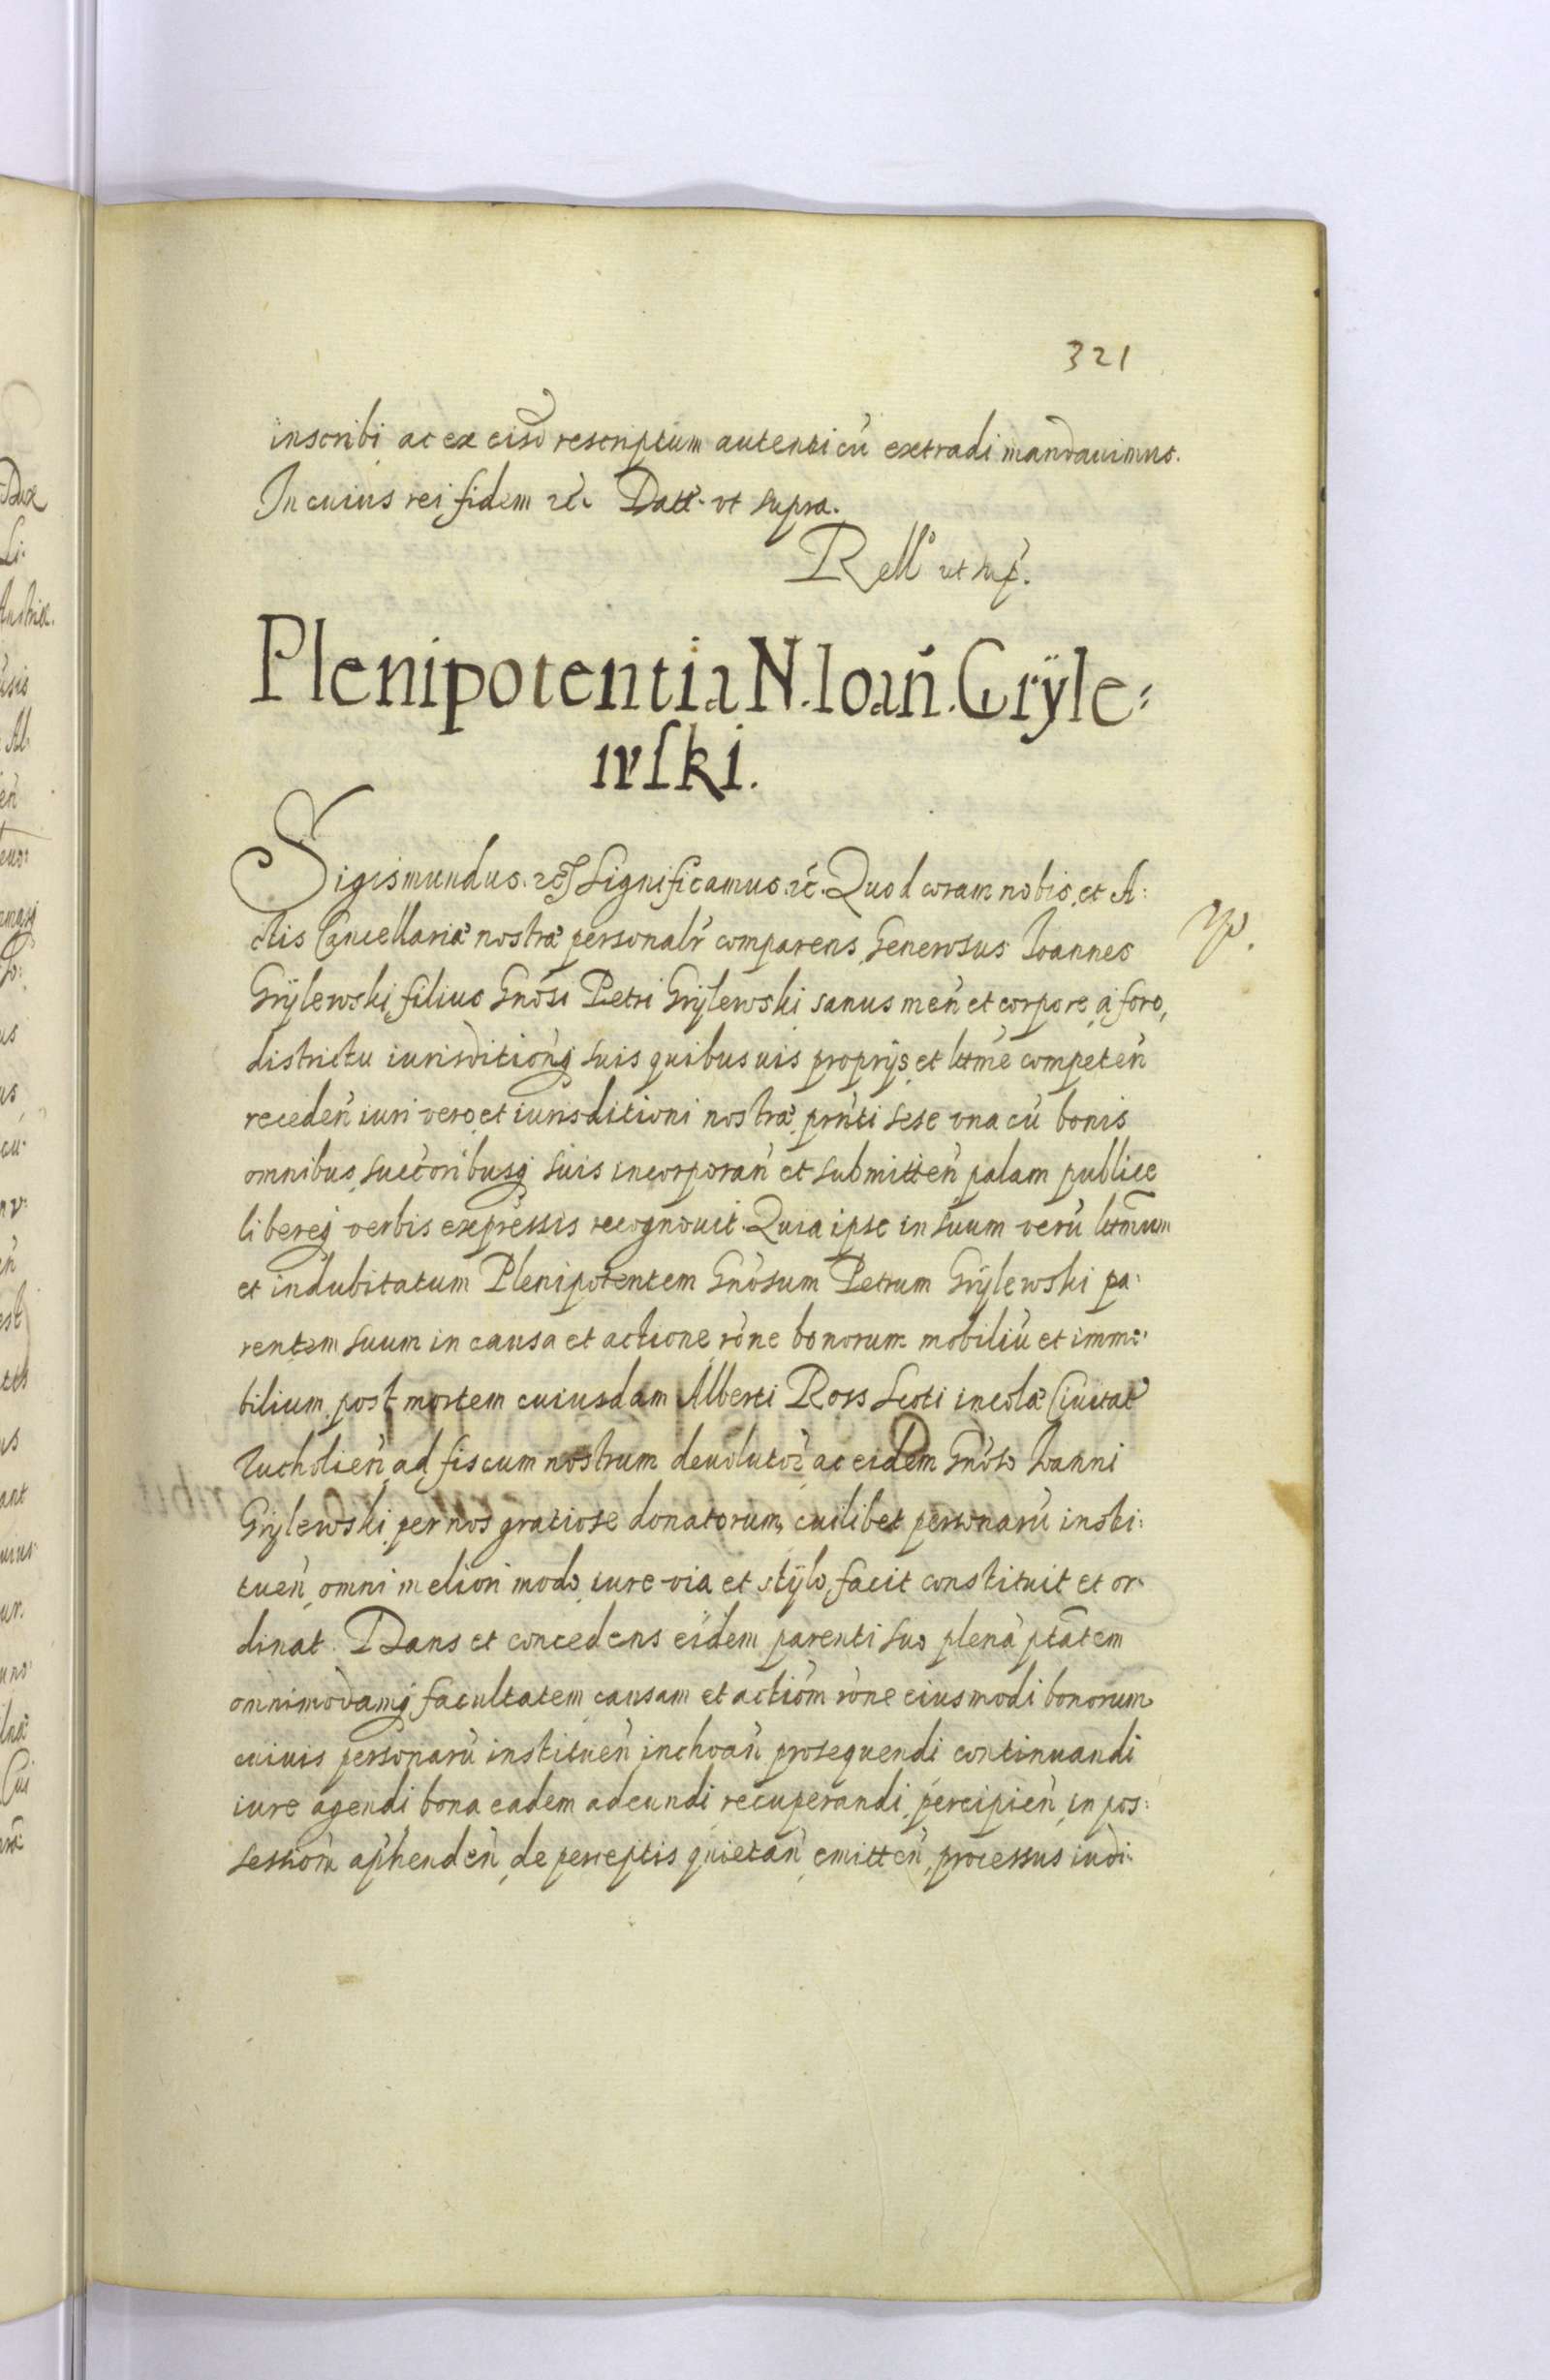 321
inscribi ac ex eisd rescriptum autenticũ extradi mandauimus.
In cuius rei fidem etc. Datt. vt supra.
Rellº ut sup.
Plenipotentia N. Ioañ. Grÿle=
wski.
Sigismundus. etc. Significamus. etc. Quod coram nobis, et A:
ctis Cancellariæ nostræ personalr̃ comparens, Generosus Ioannes
Grÿlewski, filius Gnosi Petri Grÿlewski sanus meñ et corpore, a foro,
districtu iurisditionq́ suis quibusuis proprijs, et lttme competeñ
recedeñ iuri vero, et iurisditioni nostræ, prñti sese vna cũ bonis
omnibus, succ̃oribusq́ suis incorporañ et submitteñ palam publice
libereq́ verbis expressis recognouit. Quia ipse in suum verũ lttmum
et indubitatum Plenipotentem Gnosum Petrum Grÿlewski pa:
rentem suum in causa et actione rõne bonorum mobiliũ et immo:
bilium, post mortem cuiusdam Alberti Ross Scoti incolæ Ciuitat̃
Tucholieñ, ad fiscum nostrum deuolutoꝝ, ac eidem Gnoso Ioanni
Grÿlewski per nos gratiose donatorum, cuilibet personarũ insti:
tueñ, omni meliori modo, iure via et stÿlo, facit constituit et or:
dinat. Dans et concedens eidem parenti suo plenã ptãtem
omnimodamq́ facultatem, causam et actiõm rõne eiusmodi bonorum
cuiuis personarũ instituen̂, inchoañ prosequendi continuandi
iure agendi bona eadem adeundi, recuperandi, percipieñ, in pos:
sessiõm aphendeñ, de perceptis quietañ, emitteñ, processus iudi: